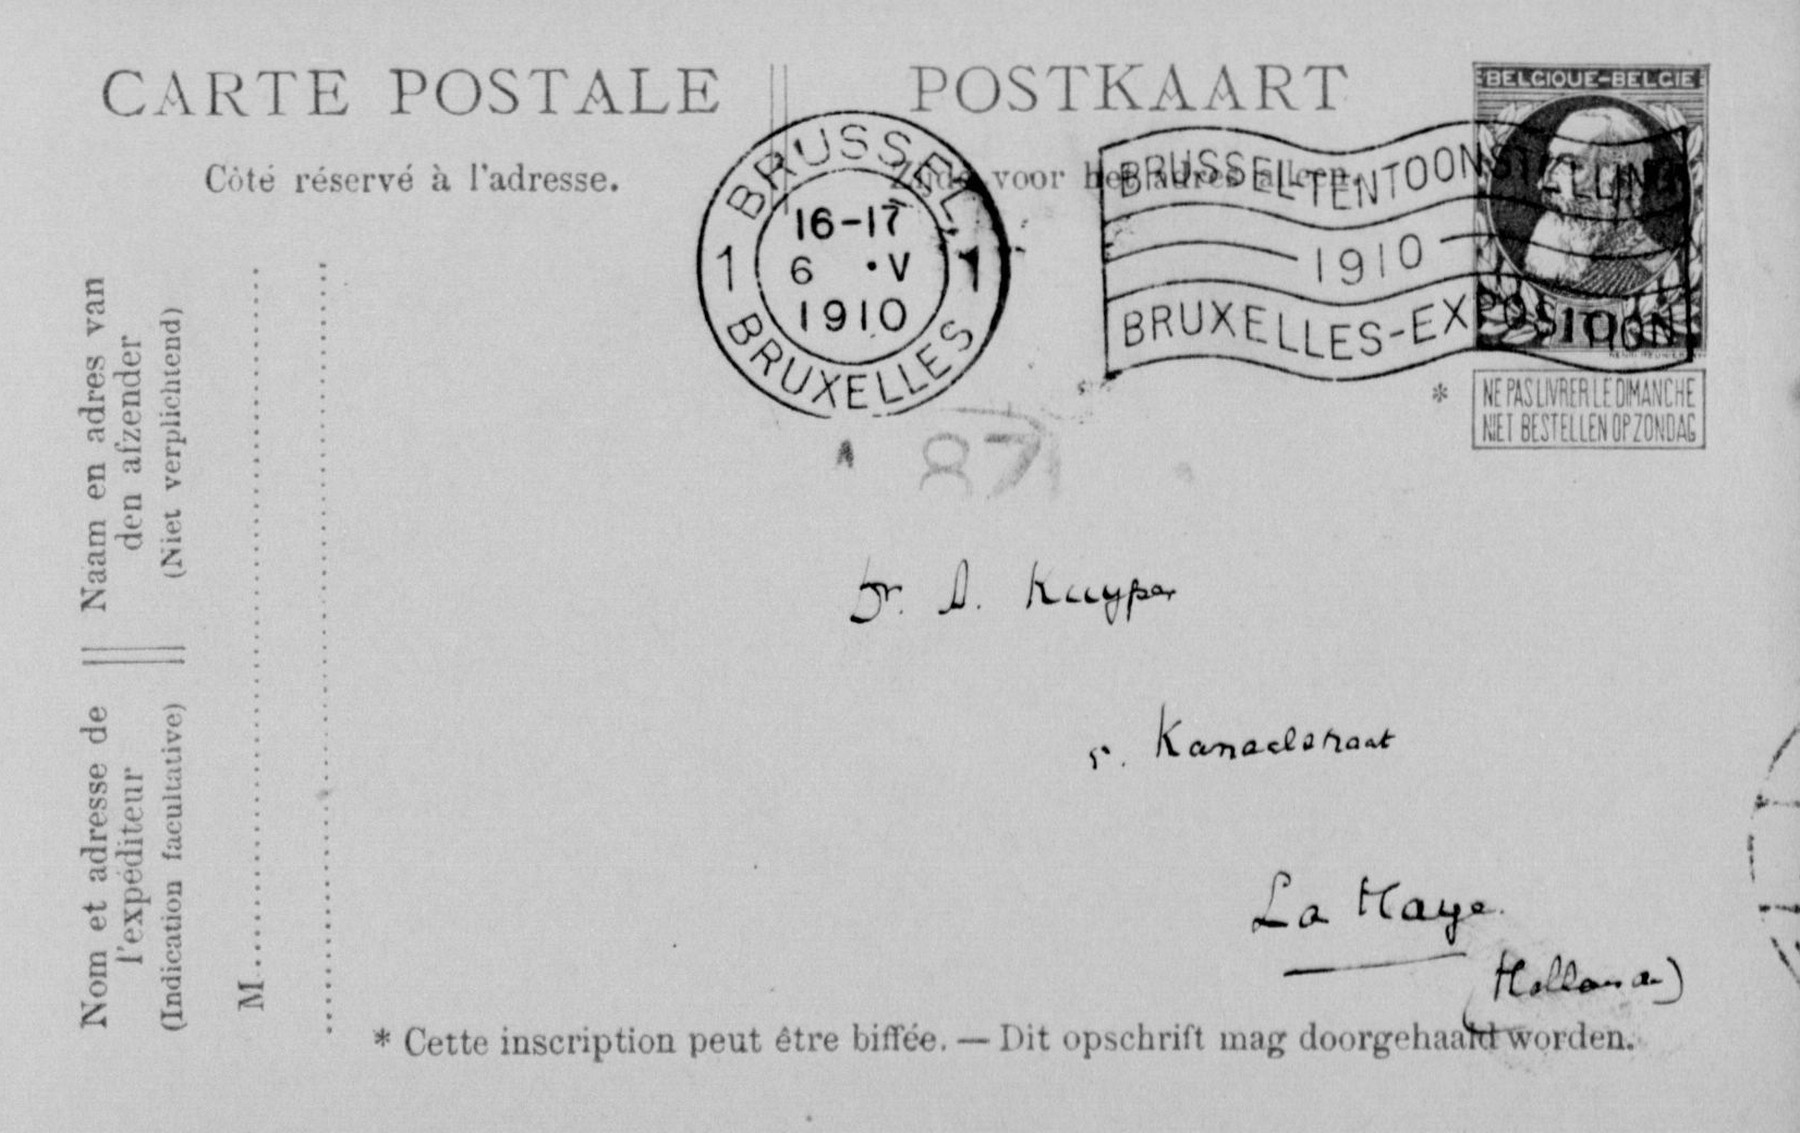 CARTE POSTALE
POSTKAART
Côté réservé à l'adresse.
Zijde voor het adres alleen.
BELGIQUE-BELGIE
BRUSSEL
1 1
16-17
6 • V
1910
BRUXELLES
BRUSSEL-TENTOONSTELLING
1910
BRUXELLES-EXPOSITION
* NE PAS LIVRER LE DIMANCHE
NIET BESTELLEN OP ZONDAG
87
Dr. A. Kuyper
5. Kanaalstraat
La Haye.
(Holland)
Naam en adres van
den afzender
(Niet verplichtend)
Nom et adresse de
l'expéditeur
(Indication facultative)
M
* Cette inscription peut être biffée. — Dit opschrift mag doorgehaald worden.